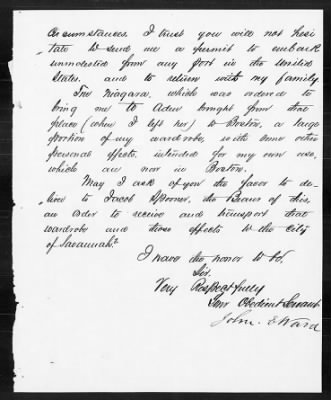 circumstances. I trust you will not hesi
tate to send me a permit to embark
unmolested from any port in the United
States. and to return with my family
The Niagara, which was ordered to
bring me to Aden brought from that
place (where I left her) to Boston, a large
portion of my wardrobe, with some other
personal effects, intended for my own use,
which are now in Boston.
May I ask of you the favor to de-
liver to Jacob Spooner, the Bearer of this,
an order to receive and transport that
wardrobe and those effects to the City
of Savannah.
I have the honor to be,
Sir,
Very Respectfully
Your Obedient Servant
John. E Ward